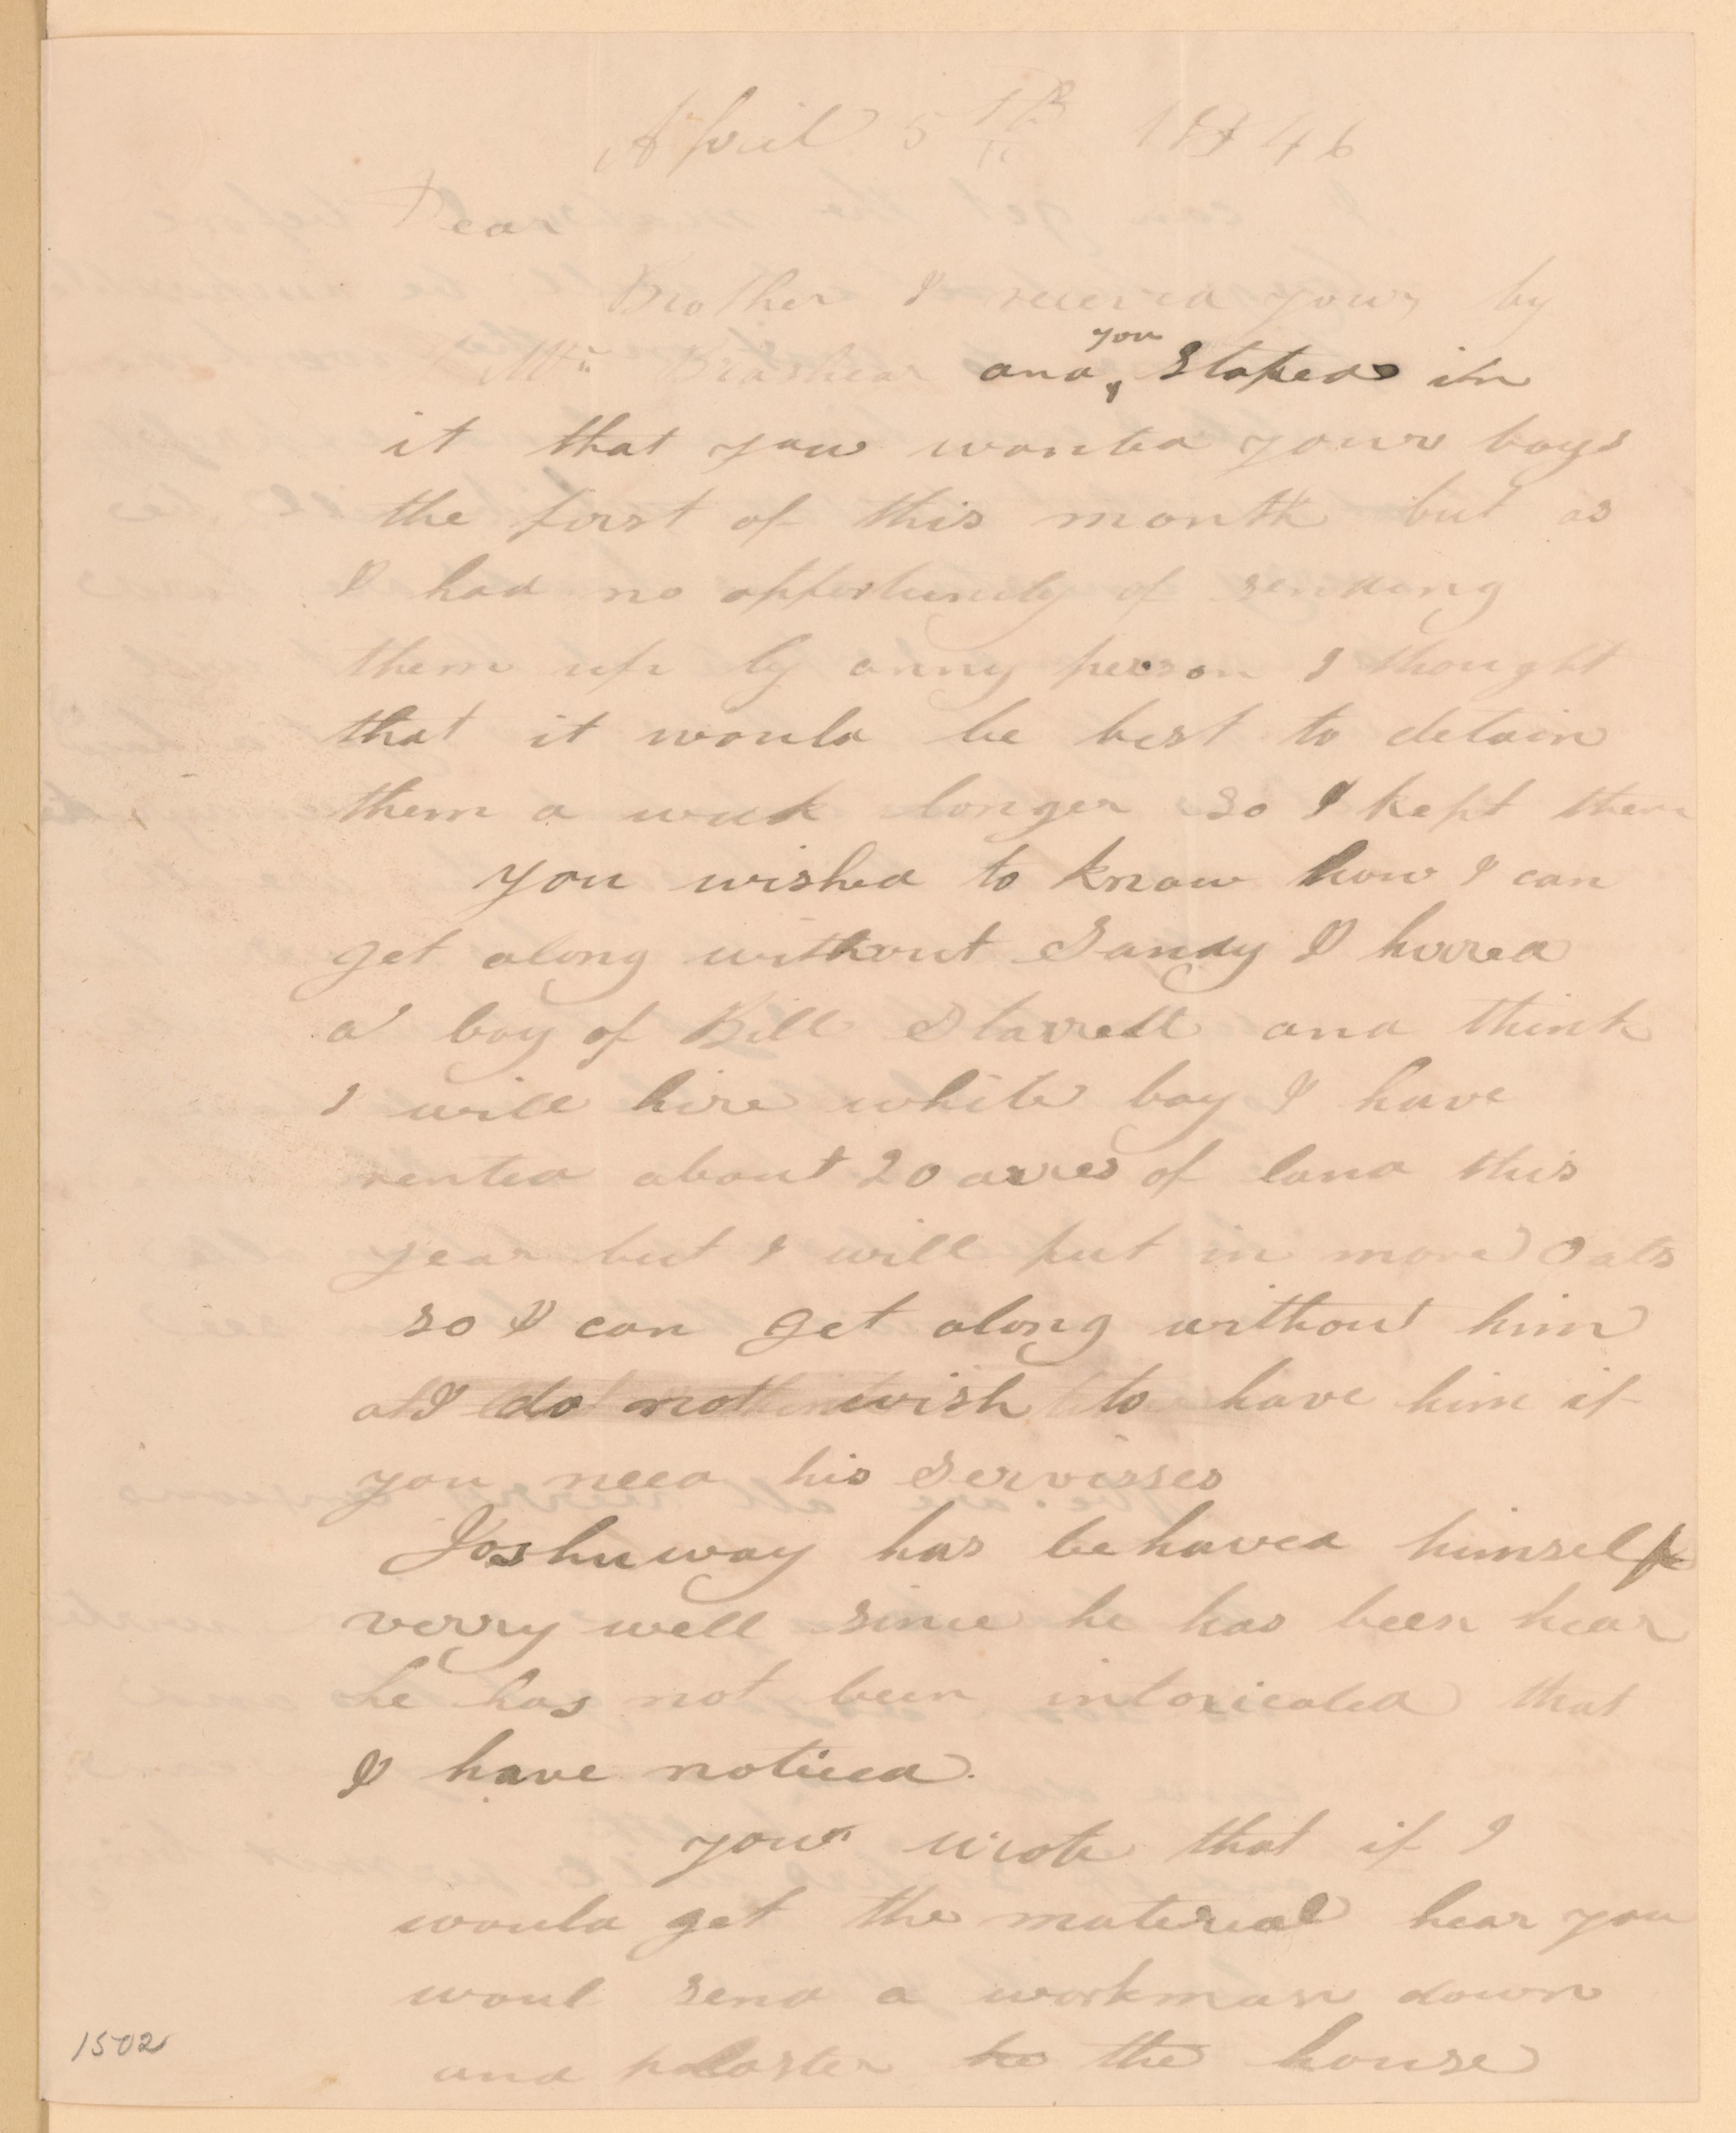 April 5th 1846
Dear
Brother I receivd yours by
Mr Brashear and you Stated in
it that you wanted your boys
the first of this month but as
I had no opportunity of sending
them up by anny person I thought
that it would be best to detain
them a week longer so I kept them
you wished to know how I can
get along without Sandy I hired
a boy of Bill Starrett and think
I will hire white boy I have
rented about 20 acres of land this
year but I will put in more Oats
so I can get along without him
I do not wish to have him if
you need his Servisses
Joshuway has behaved himself
verry well since he has been hear
he has not been intoxicated that
I have noticed.
your wrote that if I
would get the material hear you
woul send a workman down
and plaster the house
1502